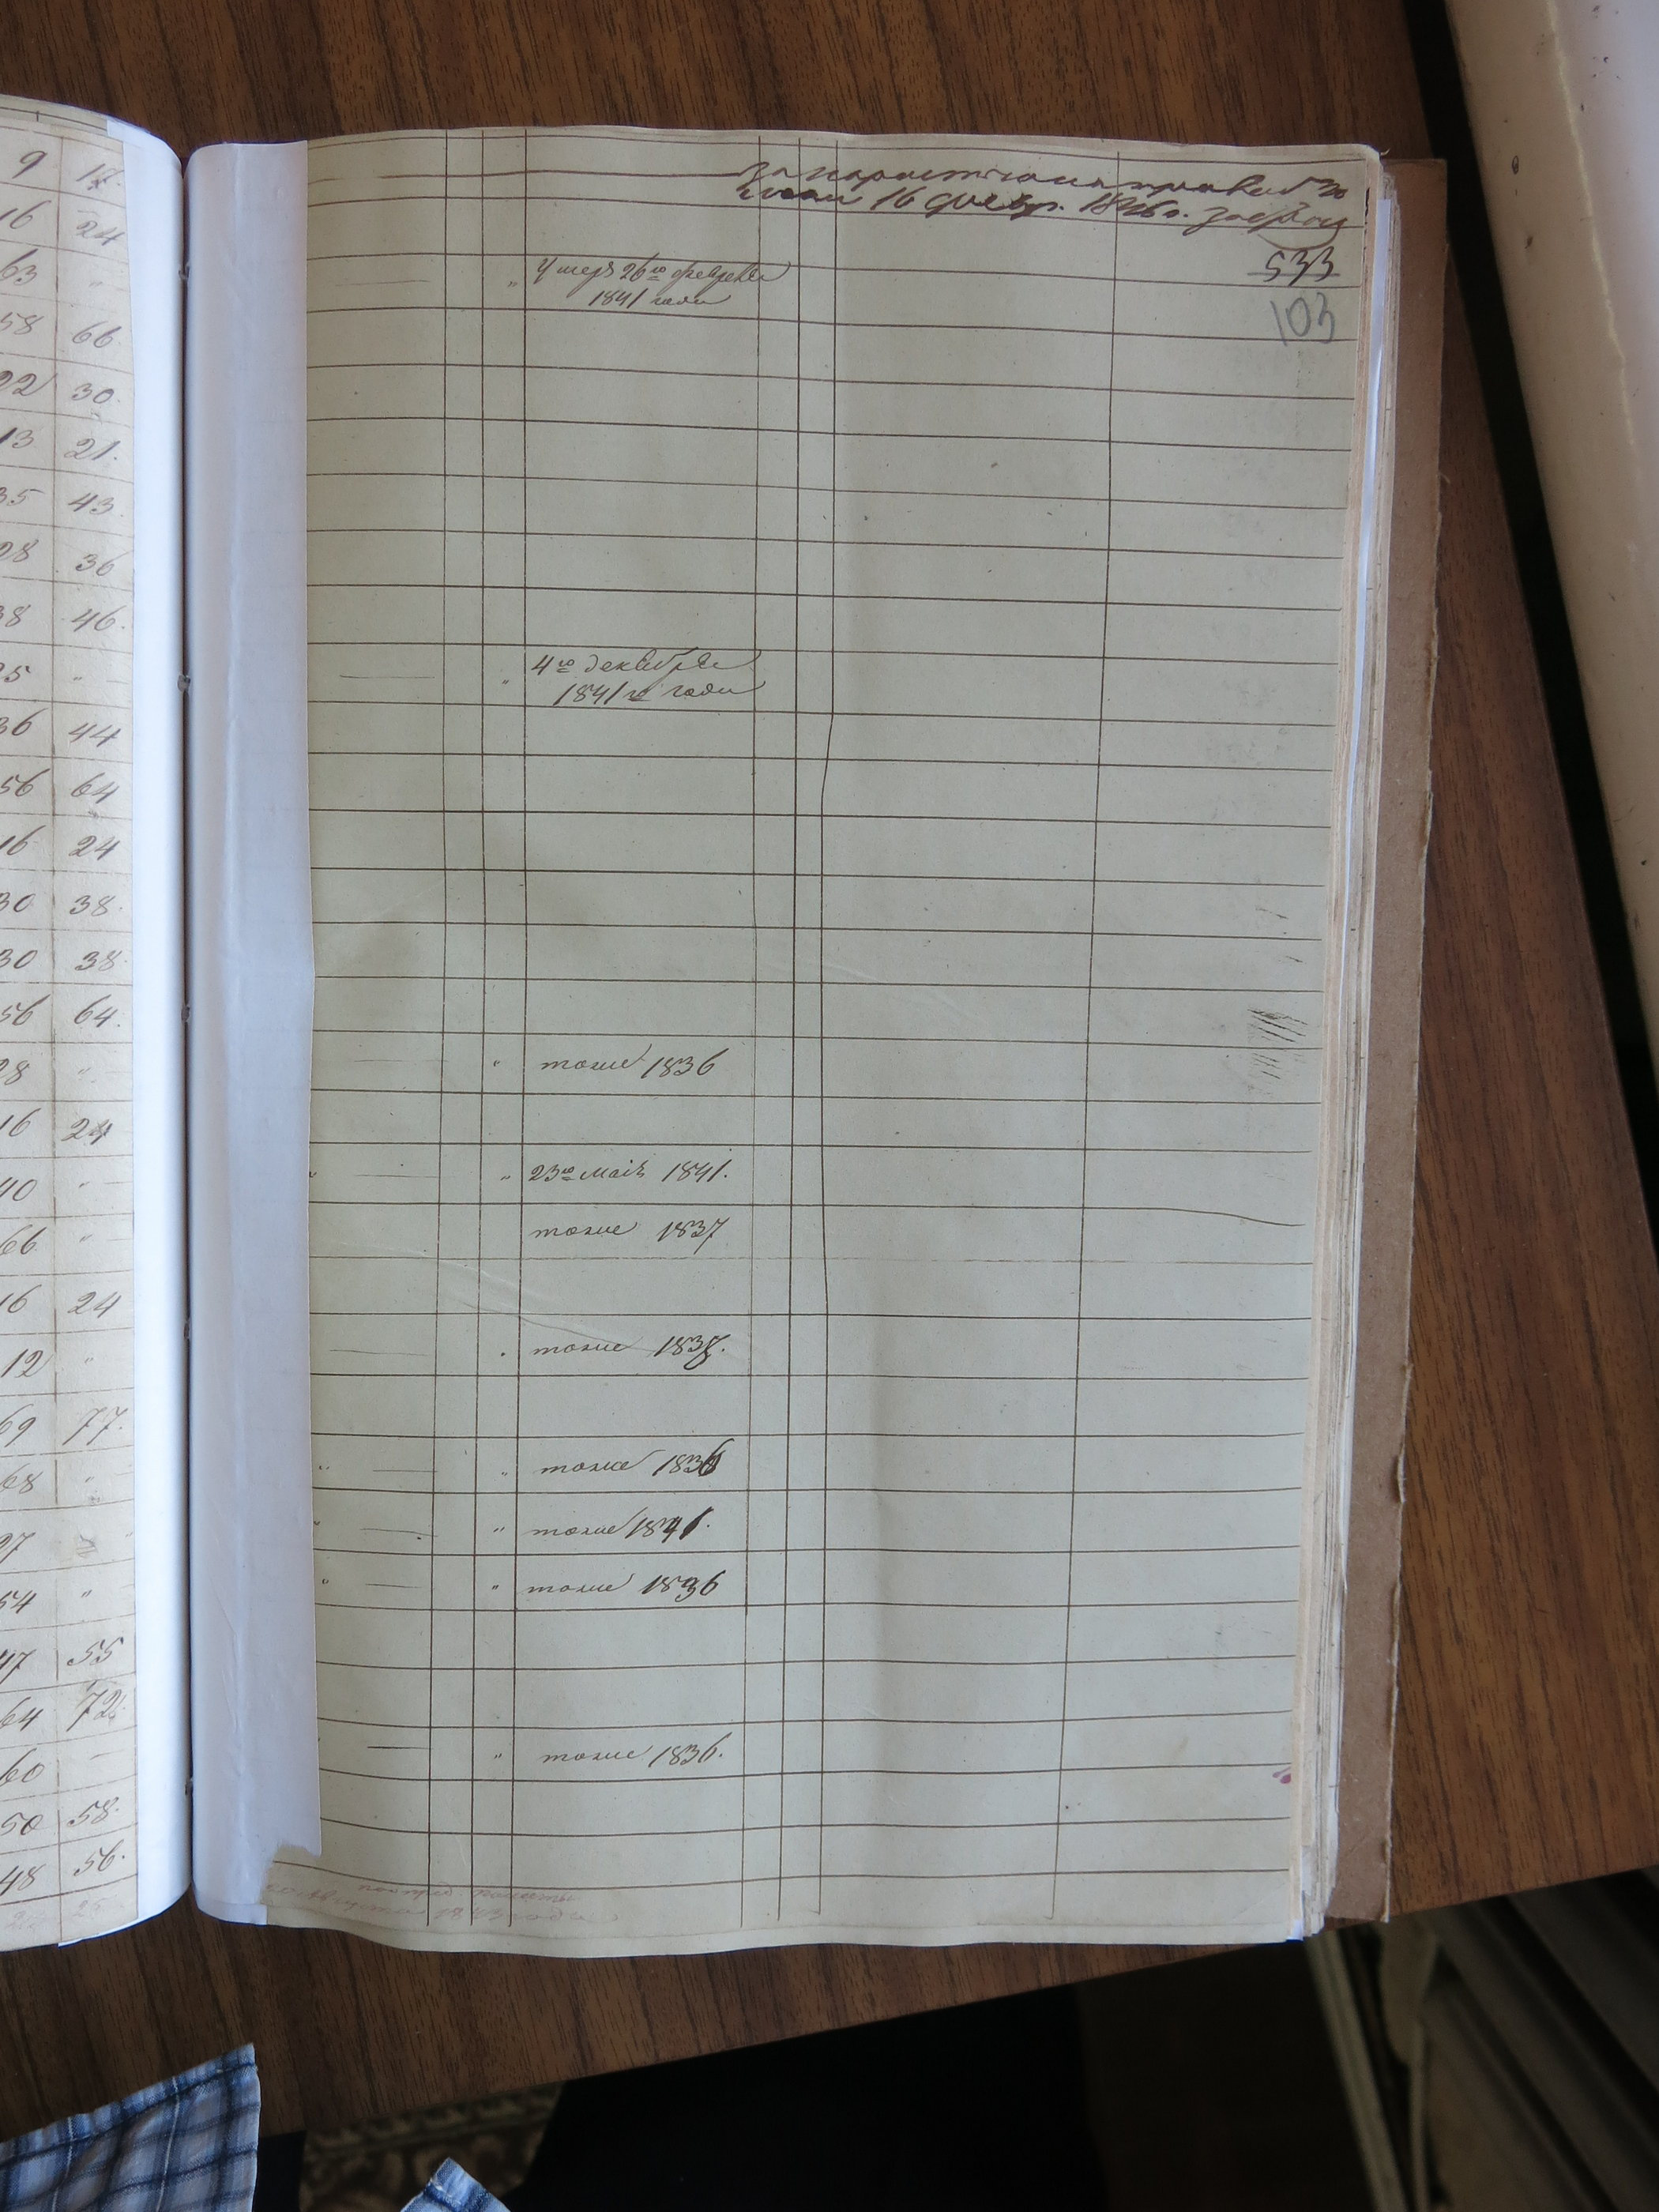 9 17.
16 24
63 "
58 66
22 30
13 21.
35 43.
28 36
38 46.
25 "
36 44
56 64
16 24
30 38.
30 38.
56 64.
28 "
16 24
40 "
66 "
16 24
12 "
69 77.
68 "
27
54 "
47 55
64 72.
60 —
50 58.
48 56.
16 1846 г.
533
103
" Умеръ 26го февраля
1841 года
" 4го декабря
1841 го года
" тоже 1836
" 23го маія 1841.
тоже 1837
тоже 1838.
" тоже 1836
" тоже 1841.
" тоже 1836
" тоже 1836.